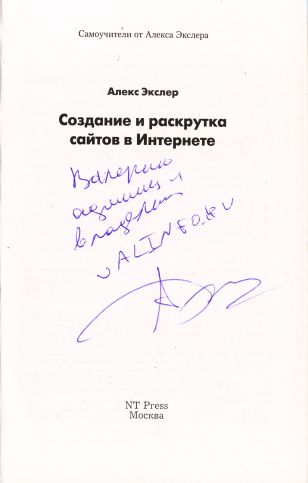 Самоучители от Алекса Экслера
Алекс Экслер
Создание и раскрутка
сайтов в Интернете
Валерию
админу и
владельцу
VALINFO.RU
NT Press
Москва